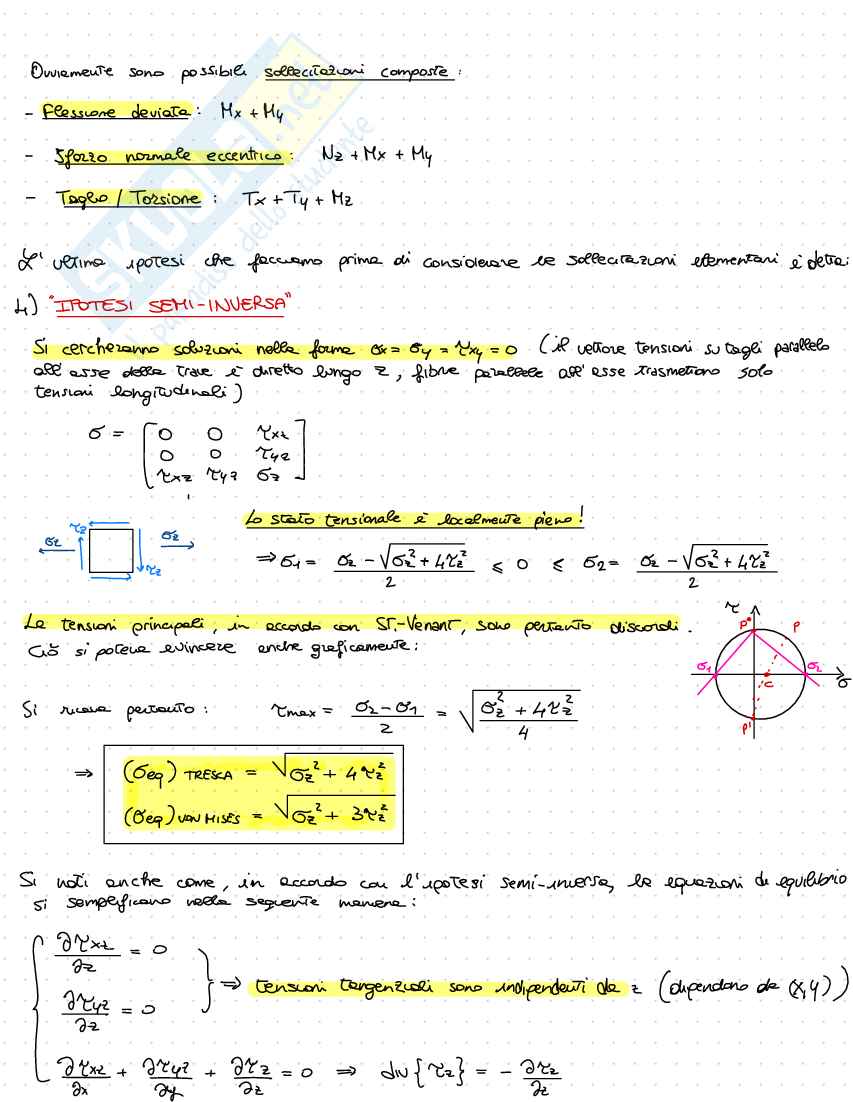 Ovviamente sono possibili sollecitazioni composte:
- Flessione deviata: Mx + My
- Sforzo normale eccentrico: Nz + Mx + My
- Taglio / Torsione : Tx + Ty + Mz
L'ultima ipotesi che facciamo prima di considerare le sollecitazioni elementari è detta:
4) "IPOTESI SEMI-INVERSA"
Si cercheranno soluzioni nella forma σx = σy = τxy = 0 (il vettore tensioni su tagli parallelo
all'asse della trave è diretto lungo z, fibre parallele all'asse trasmettono solo
tensioni longitudinali)
σ = [0 0 τxz
0 0 τyz
τxz τyz σz]
τz
σz
σz
τz
Lo stato tensionale è localmente piano!
⇒ σ1 = (σz − √(σz² + 4τz²))/2 ⩽ 0 ⩽ σ2 = (σz − √(σz² + 4τz²))/2
Le tensioni principali, in accordo con ST.-Venant, sono pertanto discordi.
Ciò si poteva evincere anche graficamente:
τ
P*
P
σ1
σ2
C
σ
P'
Si ricava pertanto: τmax = (σ2 − σ1)/2 = √((σz² + 4τz²)/4)
⇒ (σeq) TRESCA = √(σz² + 4τz²)
(σeq) VON MISES = √(σz² + 3τz²)
Si noti anche come, in accordo con l'ipotesi semi-inversa, le equazioni di equilibrio
si semplificano nella seguente maniera:
∂τxz/∂z = 0
∂τyz/∂z = 0
⇒ tensioni tangenziali sono indipendenti da z (dipendono da (x,y))
∂τxz/∂x + ∂τyz/∂y + ∂τz/∂z = 0 ⇒ div{τz} = − ∂τz/∂z
SKUOLA.net
il paradiso dello studente